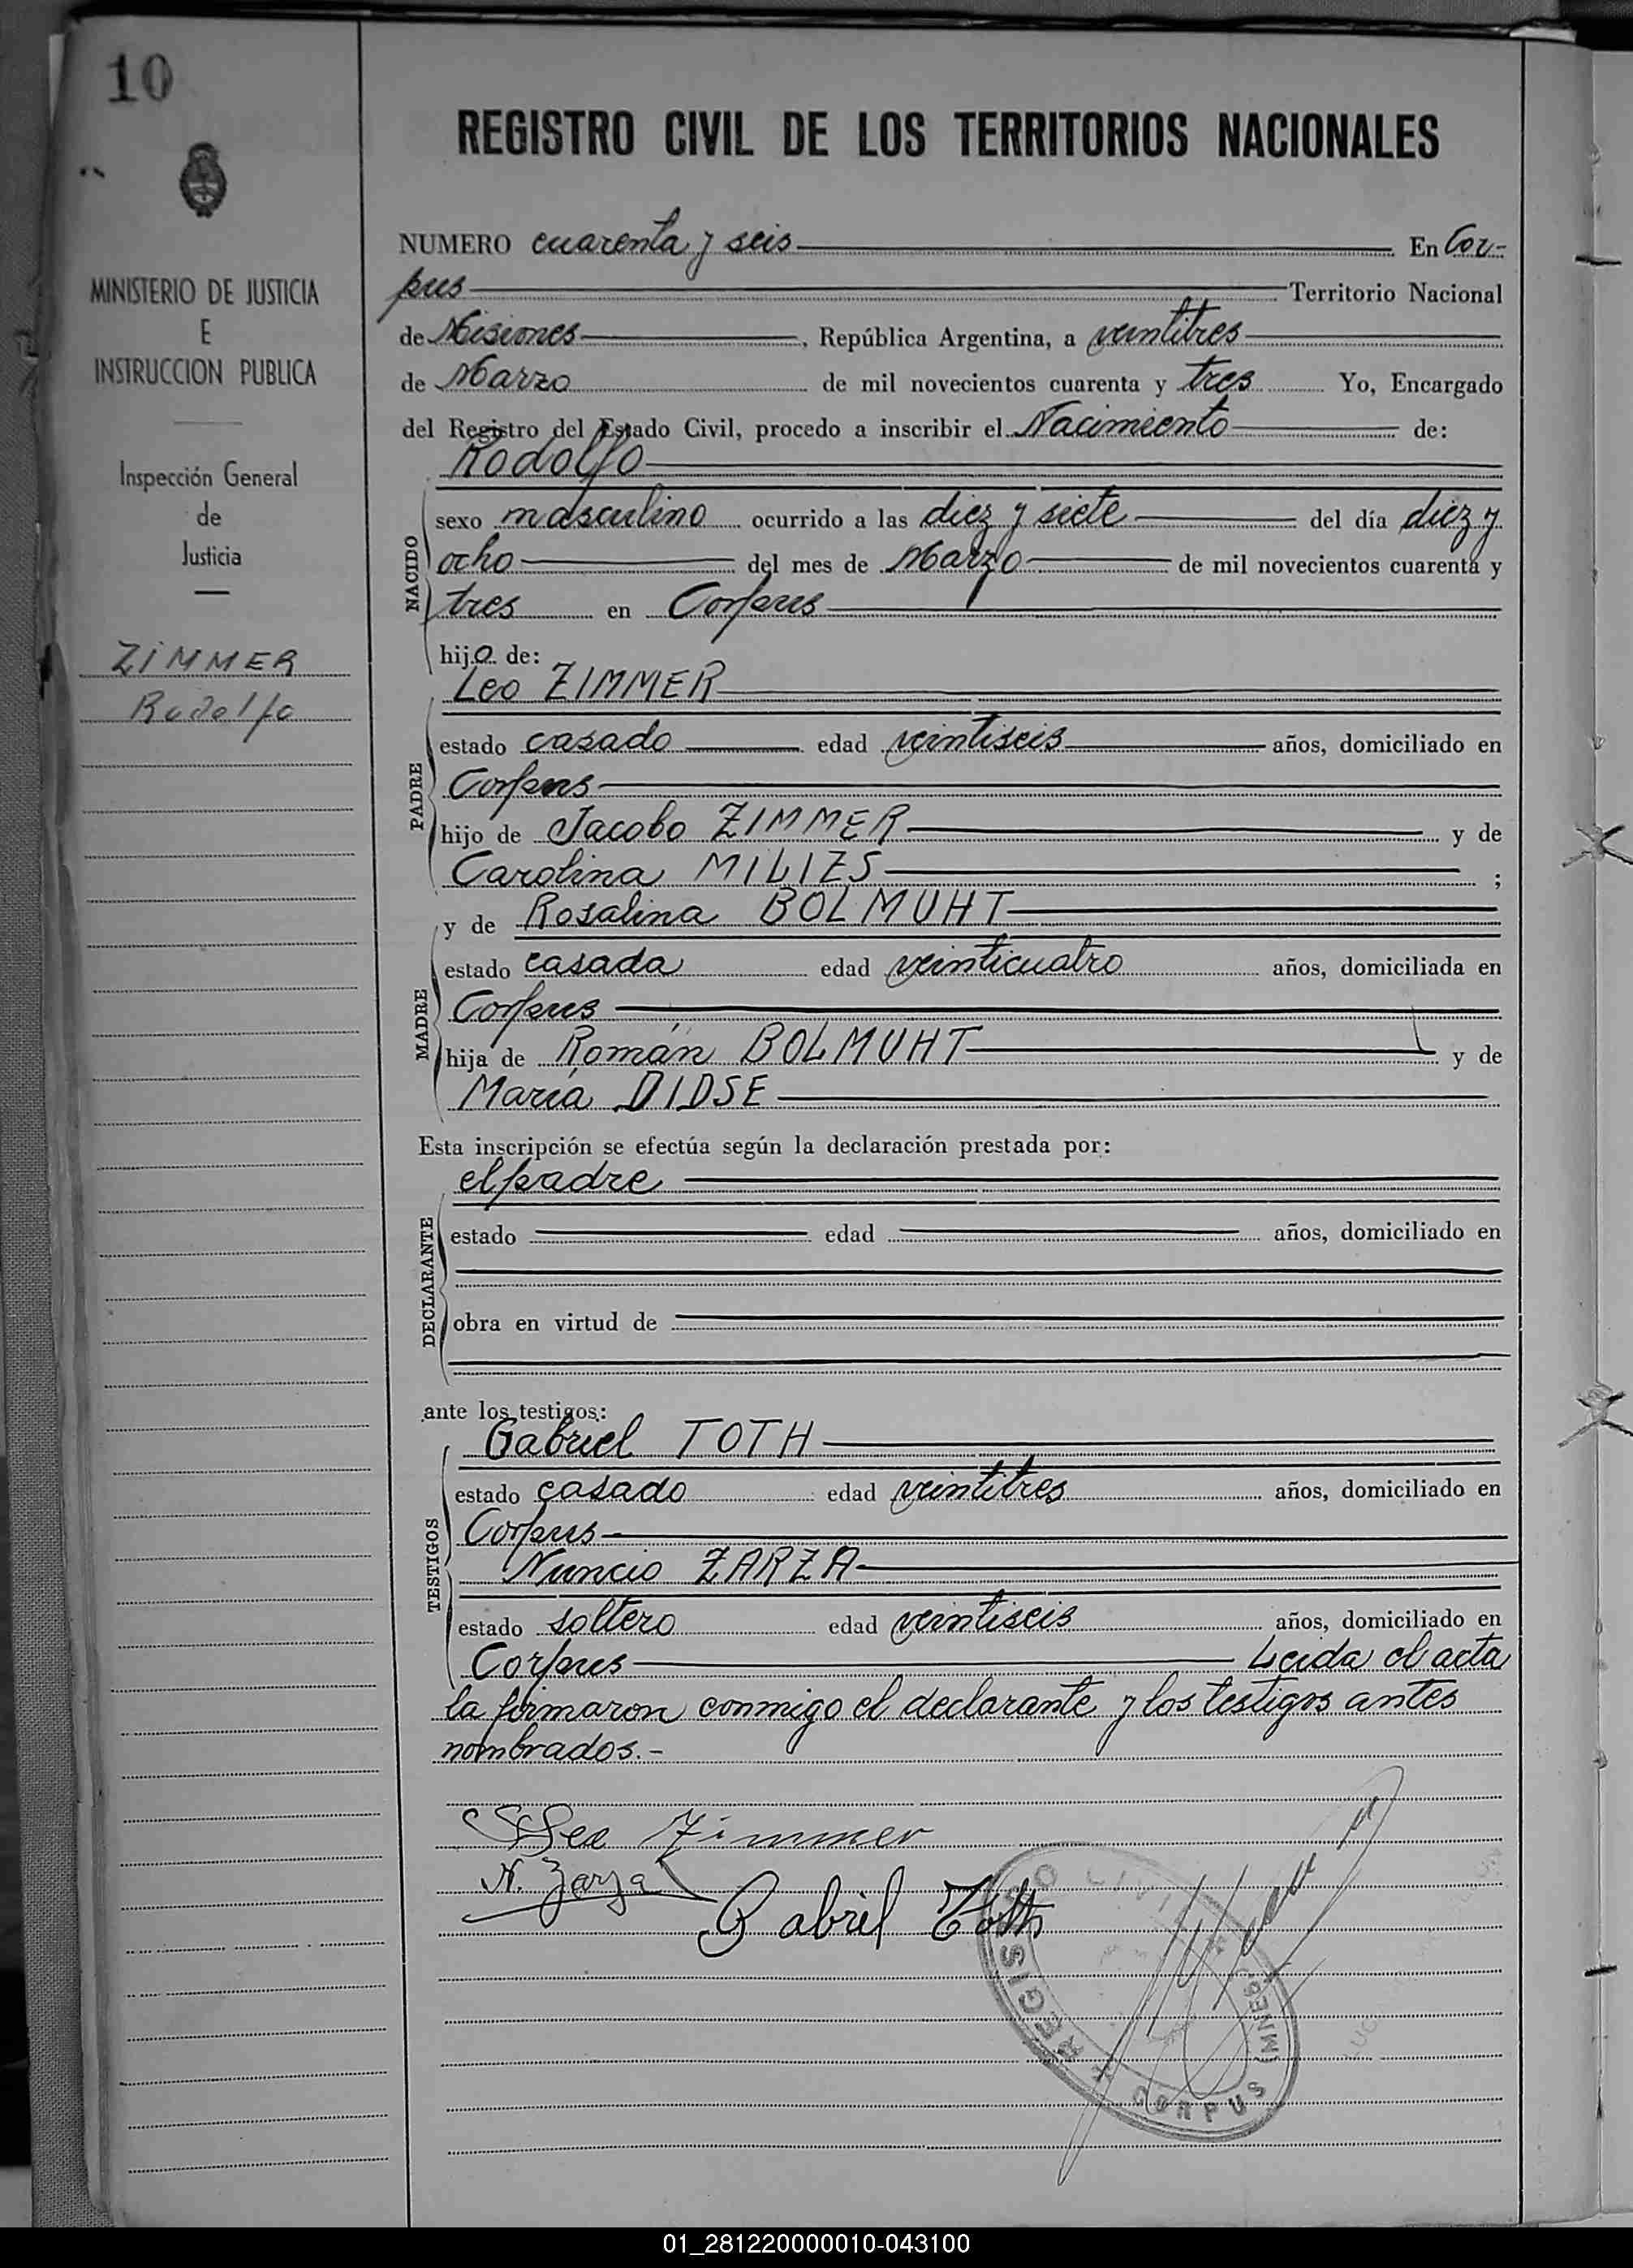 10
REGISTRO CIVIL DE LOS TERRITORIOS NACIONALES
MINISTERIO DE JUSTICIA
E
INSTRUCCION PUBLICA
Inspección General
de
Justicia
ZIMMER
Rodolfo
NUMERO cuarenta y seis En Cor-
pus Territorio Nacional
de Misiones, República Argentina, a veintitres
de Marzo de mil novecientos cuarenta y tres Yo, Encargado
del Registro del Estado Civil, procedo a inscribir el Nacimiento de:
Rodolfo
NACIDO
sexo masculino ocurrido a las diez y siete del día diez y
ocho del mes de Marzo de mil novecientos cuarenta y
tres en Corpus
hijo de:
Leo ZIMMER
PADRE
estado casado edad veintiseis años, domiciliado en
Corpus
hijo de Jacobo ZIMMER y de
Carolina MILIZS ;
y de Rosalina BOLMUHT
MADRE
estado casada edad veinticuatro años, domiciliada en
Corpus
hija de Román BOLMUHT y de
María DIDSE
Esta inscripción se efectúa según la declaración prestada por:
el padre
DECLARANTE
estado edad años, domiciliado en
obra en virtud de
ante los testigos:
Gabriel TOTH
TESTIGOS
estado casado edad veintitres años, domiciliado en
Corpus
Nuncio ZARZA
estado soltero edad veintiseis años, domiciliado en
Corpus Leida el acta
la firmaron conmigo el declarante y los testigos antes
nombrados.-
Leo Zimmer
N. Zarza
Gabriel Toth
REGISTRO CIVIL
CORPUS (MNES)
01_281220000010-043100